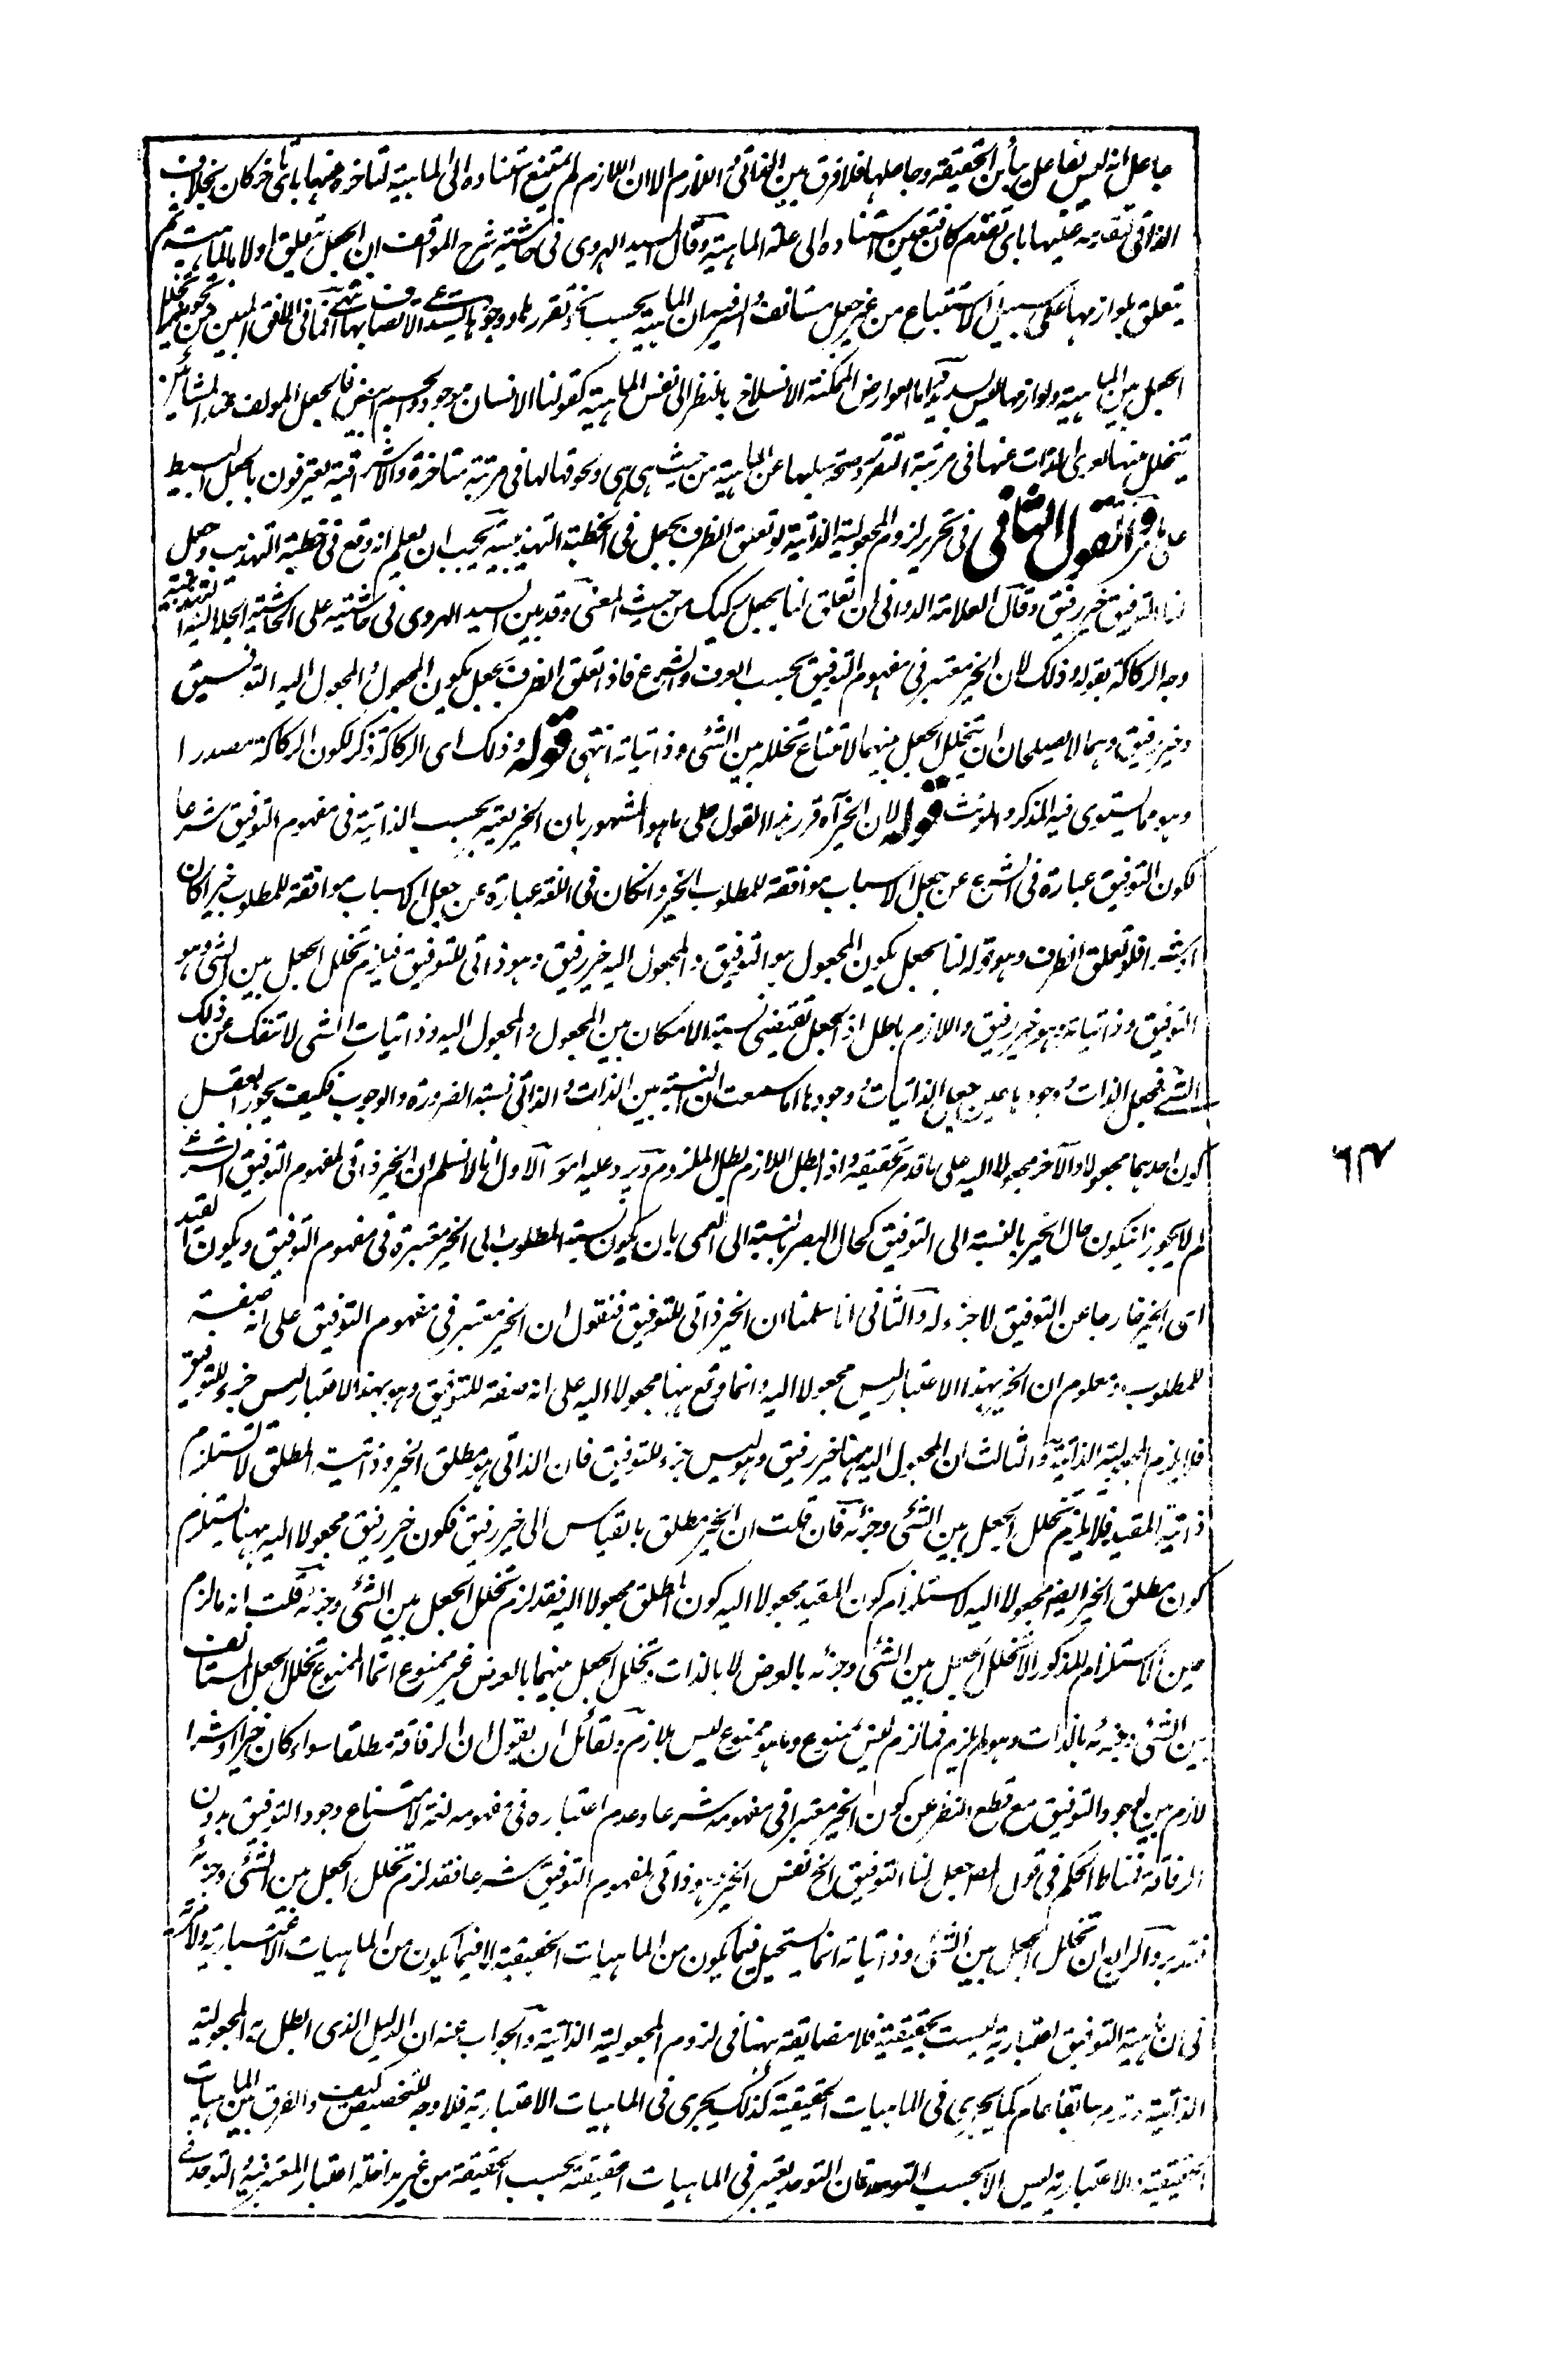 جاعل انه ليس بفاعل يباين الحقيقة وجاعلها فلا فرق بين الذاتى واللازم الا ان اللازم لم يمتنع استناده الى الماهية لتاخره عنها باى تاخر كان بخلاف
الذاتى لتقدمه عليها باى تقدم كان فتعين استناده الى علة الماهية وقال السيد الهروى فى حاشية شرح المواقف ان الجعل يتعلق اولا بالماهية ثم
يتعلق بلوازمها على سبيل الاستتباع من غير جعل مستانف والسر فيه ان الماهية بحسب تقررها ووجودها الاتصاف بها انتهى فما فى الافق المبين من تجويز تخلل
الجعل بين الماهية ولوازمها ليس بسديد اما العوارض الممكنة الانسلاخ بالنظر الى نفس الماهية كقولنا الانسان موجود والجسم ابيض فالجعل المولف عند المشائين
يتخلل بينها لعرى الذات عنها فى مرتبة التقرر وصحة سلبها عن الماهية من حيث هى هى ولحوقها لها فى مرتبة متاخرة والاشراقية يعترفون بالجعل البسيط
على ما مر القول الثانى فى تحرير لزوم المجعولية الذاتية لو تعلق الظرف بجعل فى الخطبة التهذيبية يجب ان يعلم انه وقع فى خطبة التهذيب وجعل
لنا التوفيق خير رفيق وقال العلامة الدوانى ان تعلق لنا بجعل ركيك من حيث المعنى وقد بين السيد الهروى فى حاشيته على الحاشية الجلالية
وجه الركاكة بقوله وذلك لان الخير معتبر فى مفهوم التوفيق بحسب العرف والشرع فاذا تعلق الظرف بجعل يكون المجعول والمجعول اليه التوفيق
وخير رفيق وهما لا يصلحان ان يتخلل الجعل بينهما لامتناع تخلله بين الشئ وذاتياته انتهى قوله وذلك اى الركاكة ذكر لكون الركاكة مصدرا
وهو مما يستوى فيه المذكر والمؤنث قوله لان الخير آه قرر هذا القول على ما هو المشهور بان الخير يعتبر بحسب الذاتية فى مفهوم التوفيق شرعا
لكون التوفيق عبارة فى الشرع عن جعل الاسباب موافقة للمطلوب الخير وانكان فى اللغة عبارة عن جعل الاسباب موافقة للمطلوب خيرا كان
او شرا فلو تعلق الظرف وهو قوله لنا بجعل يكون المجعول هو التوفيق والمجعول اليه خير رفيق وهو ذاتى للتوفيق فيلزم تخلل الجعل بين الشئ وهو
التوفيق وذاتياته وهو خير رفيق واللازم باطل اذ الجعل يقتضى نسبة الامكان بين المجعول والمجعول اليه وذاتيات الشى لا تنفك عن ذلك
الشئ فجعل الذات ووجودها عين جعل الذاتيات ووجودها اما سمعت ان النسبة بين الذات والذاتى نسبة الضرورة والوجوب فكيف يجوز العقل
كون احدهما مجعولا والآخر مجعولا اليه على ما قدم تحقيقه واذا بطل اللازم بطل الملزوم ويرد عليه امور الاول انا لا نسلم ان الخير ذاتى لمفهوم التوفيق الشرعى
لم لا يجوز ان يكون حال الخير بالنسبة الى التوفيق كحال البصر بالنسبة الى العمى بان يكون نسبة المطلوب الى الخير معتبرة فى مفهوم التوفيق ويكون القيد
اعنى الخير خارجا عن التوفيق لا جزء له والثانى انا سلمنا ان الخير ذاتى للتوفيق فنقول ان الخير معتبر فى مفهوم التوفيق على انه صفة
للمطلوب ومعلوم ان الخير بهذا الاعتبار ليس مجعولا اليه وانما وقع ههنا مجعولا اليه على انه صفة للتوفيق وهو بهذا الاعتبار ليس جزء للتوفيق
فلا يلزم المجعولية الذاتية والثالث ان المجعول اليه ههنا خير رفيق وهو ليس جزء للتوفيق فان الذاتى هو مطلق الخير وذاتية المطلق لا تستلزم
ذاتية المقيد فلا يلزم تخلل الجعل بين الشئ وجزئه فان قلت ان الخير مطلق بالقياس الى خير رفيق فكون خير رفيق مجعولا اليه ههنا يستلزم
كون مطلق الخير ايضا مجعولا اليه لاستلزام كون المقيد مجعولا اليه كون المطلق مجعولا اليه فقد لزم تخلل الجعل بين الشئ وجزئه قلت انه ما لزم
من الاستلزام المذكور الا تخلل الجعل بين الشئ وجزئه بالعرض لا بالذات وتخلل الجعل بينهما بالعرض غير ممنوع انما الممنوع تخلل الجعل المستانف
بين الشئ وجزئه بالذات وهو لم يلزم فما لزم ليس بممنوع وما هو ممنوع ليس بلازم ولقائل ان يقول ان الرفاقة مطلقا سواء كان خيرا او شرا
لازم بين لوجود التوفيق مع قطع النظر عن كون الخير معتبرا فى مفهومه شرعا وعدم اعتباره فى مفهومه لغة لامتناع وجود التوفيق بدون
الرفاقة فمناط الحكم فى قول المص جعل لنا التوفيق الخ نفس الخير وهو ذاتى لمفهوم التوفيق شرعا فقد لزم تخلل الجعل بين الشئ وجزئه
فتدبر والرابع ان تخلل الجعل بين الشئ وذاتياته انما يستحيل فيما يكون من الماهيات الحقيقية لا فيما يكون من الماهيات الاعتبارية ولا مرية
فى ان ماهية التوفيق اعتبارية ليست بحقيقية فلا مضايقة ههنا فى لزوم المجعولية الذاتية والجواب عنه ان الدليل الذى ابطل به المجعولية
الذاتية وقد مر سابقا عام كما يجرى فى الماهيات الحقيقية كذلك يجرى فى الماهيات الاعتبارية فلا وجه للتخصيص كيف والفرق بين الماهيات
الحقيقية والاعتبارية ليس الا بحسب التوحد فان التوحد يعتبر فى الماهيات الحقيقية بحسب الحقيقة من غير مداخلة اعتبار المعتبر فيه والتوحد فى